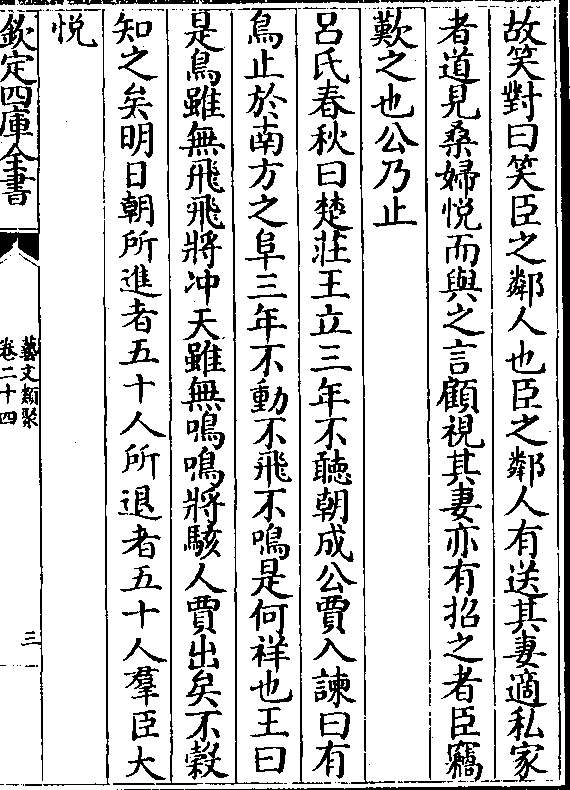 故笑對曰笑臣之鄰人也臣之鄰人有送其妻適私家
者道見桑婦悦而與之言顧視其妻亦有招之者臣竊
歎之也公乃止
吕氏春秋曰楚莊王立三年不聽朝成公賈入諫曰有
鳥止於南方之阜三年不動不飛不鳴是何祥也王曰
是鳥雖無飛飛將冲天雖無鳴鳴將駭人賈出矣不穀
知之矣明日朝所進者五十人所退者五十人羣臣大
悦
欽定四庫全書
藝文類聚
卷二十四
三